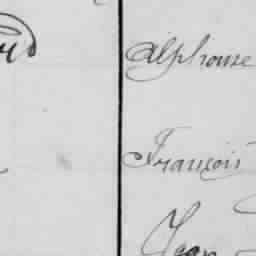 Alphonse
François
Jean